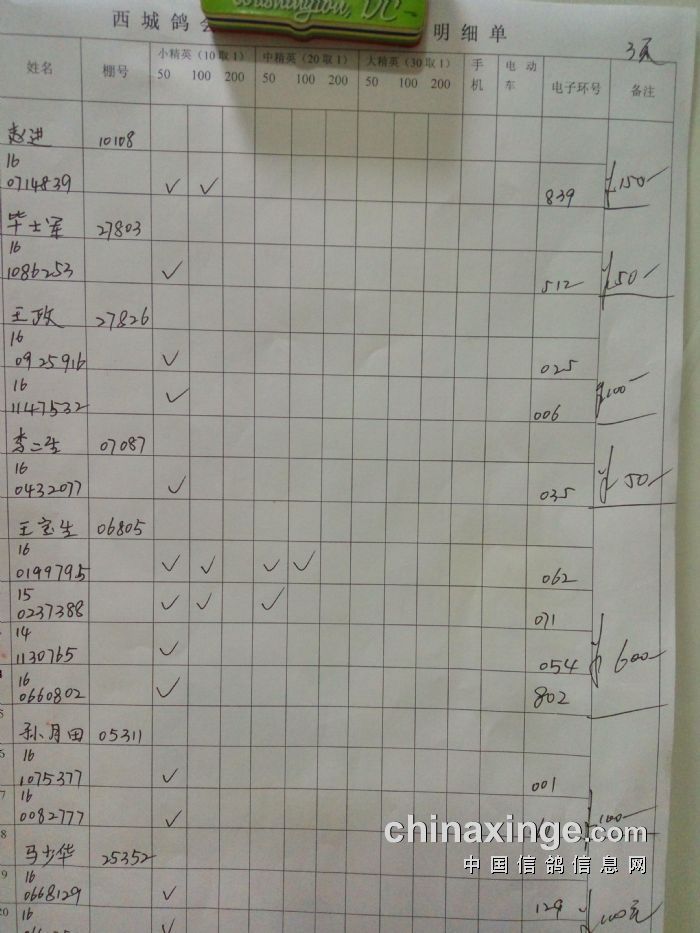 西城鸽会 明细单
Washington, DC
3页
姓名 棚号 小精英（10取1） 中精英（20取1） 大精英（30取1） 手机 电动车 电子环号 备注
50 100 200 50 100 200 50 100 200
赵进 10108
16
0714839 ✓ ✓ 839 150
毕士军 27803
16
1086253 ✓ 512 50
王政 27826
16
0925916 ✓ 025
16
1147532 ✓ 006 100
李二生 07087
16
0432077 ✓ 035 50
王宝生 06805
16
0199795 ✓ ✓ ✓ ✓ 062
15
0237388 ✓ ✓ ✓ 071
14
1130765 ✓ 054 600
16
0660802 ✓ 802
孙月田 05311
16
1075377 ✓ 001
16
0082777 ✓ 100
chinaxinge.com
中国信鸽信息网
马少华 25352
16
0668129 ✓ 129 100元
16